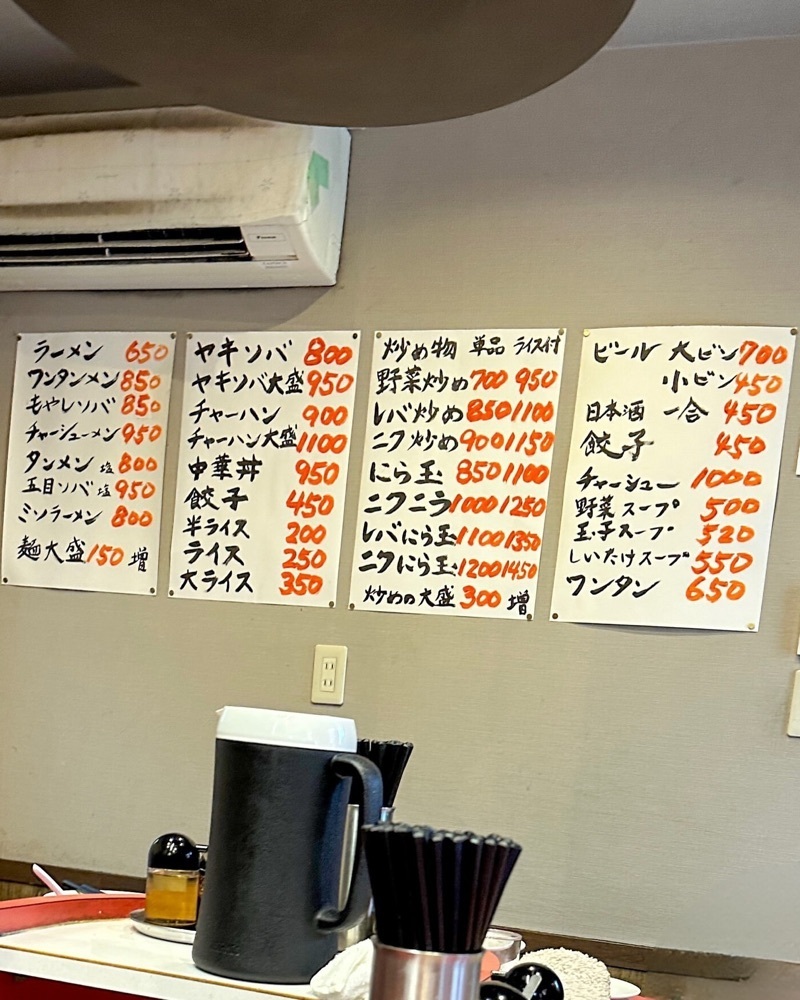 ラーメン 650
ワンタンメン 850
もやしソバ 850
チャーシューメン 950
タンメン 塩 800
五目ソバ 塩 950
ミソラーメン 800
麺大盛 150 増
ヤキソバ 800
ヤキソバ大盛 950
チャーハン 900
チャーハン大盛 1100
中華丼 950
餃子 450
半ライス 200
ライス 250
大ライス 350
炒め物 単品 ライス付
野菜炒め 700 950
レバ炒め 850 1100
ニク炒め 900 1150
にら玉 850 1100
ニクニラ 1000 1250
レバにら玉 1100 1350
ニクにら玉 1200 1450
炒めの大盛 300 増
ビール 大ビン 700
小ビン 450
日本酒 一合 450
餃子 450
チャーシュー 1000
野菜スープ 500
玉子スープ 520
しいたけスープ 550
ワンタン 650